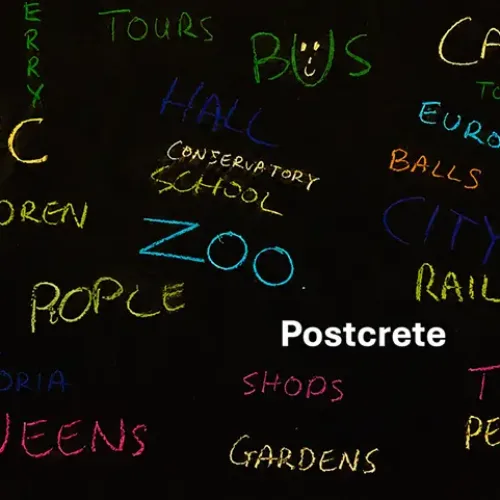 ERRY
TOURS
BUS
CA
TO
HALL
EURO
C
CONSERVATORY
BALLS
SCHOOL
OREN
CITY
ZOO
RAIL
POPLE
Postcrete
ORIA
SHOPS
T
UEENS
GARDENS
PE